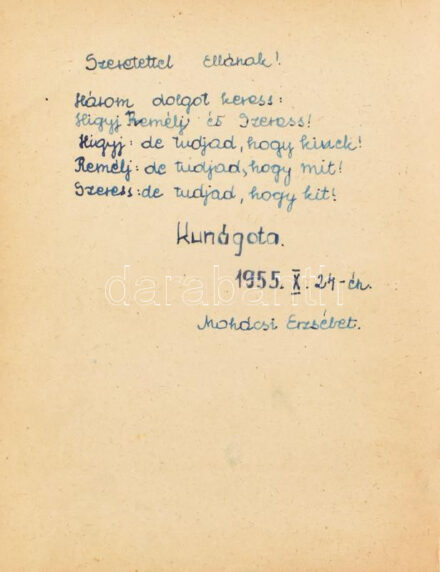 Szeretettel Ellának!
Három dolgot keress:
Higyj Remélj és Szeress!
Higyj: de tudjad, hogy kinek!
Remélj: de tudjad, hogy mit!
Szeress: de tudjad, hogy kit!
Kunágota.
1955. X. 24-én.
darabanth
Mohácsi Erzsébet.